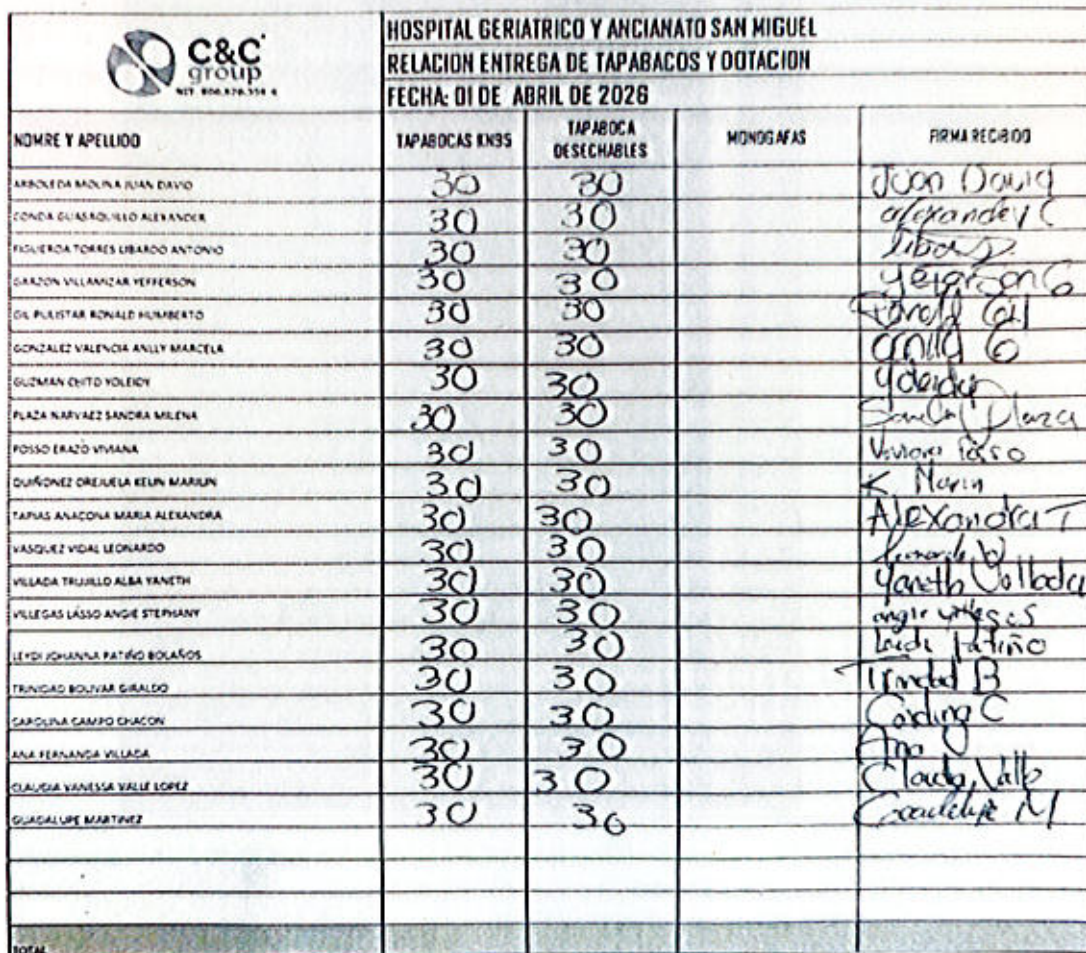 C&C
group
HOSPITAL GERIATRICO Y ANCIANATO SAN MIGUEL
RELACION ENTREGA DE TAPABACOS Y DOTACION
FECHA: 01 DE ABRIL DE 2026
NOMRE Y APELLIDO TAPABOCAS KN95 TAPABOCA DESECHABLES MONOGAFAS FIRMA RECIBIDO
ARBOLEDA MOLINA JUAN DAVID 30 30 Juan David
CONDA GUASAQUILLO ALEXANDER 30 30 alexander C
FIGUEROA TORRES LIBARDO ANTONIO 30 30
GARZON VILLAMIZAR YEFFERSON 30 30 Yeferson G
GIL PULISTAR RONALD HUMBERTO 30 30 Ronald Gil
GONZALEZ VALENCIA ANLLY MARCELA 30 30 anlly G
GUZMAN CHITO YOLEIDY 30 30 Yoleidy
PLAZA NARVAEZ SANDRA MILENA 30 30 Sandra Plaza
POSSO ERAZO VIVIANA 30 30 Viviana Posso
QUIÑONEZ OREJUELA KELIN MARILIN 30 30 K
TAPIAS ANACONA MARIA ALEXANDRA 30 30 Alexandra T
VASQUEZ VIDAL LEONARDO 30 30
VILLADA TRUJILLO ALBA YANETH 30 30 Yaneth Villada
VILLEGAS LASSO ANGIE STEPHANY 30 30 angie villegas
LEYDI JOHANNA PATIÑO BOLAÑOS 30 30 Leidi Patiño
TRINIDAD BOLIVAR GIRALDO 30 30 Trinidad B
CAROLINA CAMPO CHACON 30 30 Carolina C
ANA FERNANDA VILLADA 30 30 Ana
CLAUDIA VANESSA VALLE LOPEZ 30 30 Claudia Valle
GUADALUPE MARTINEZ 30 30 Guadalupe M
TOTAL